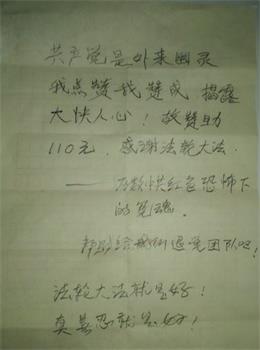 共产党是外来幽灵
我点赞我赞成 揭露
大快人心！故赞助
110元，感谢法轮大法.
—— 红色恐怖下
的冤魂.
帮 给我们退党团队吧！
法轮大法就是好！
真善忍就是好！